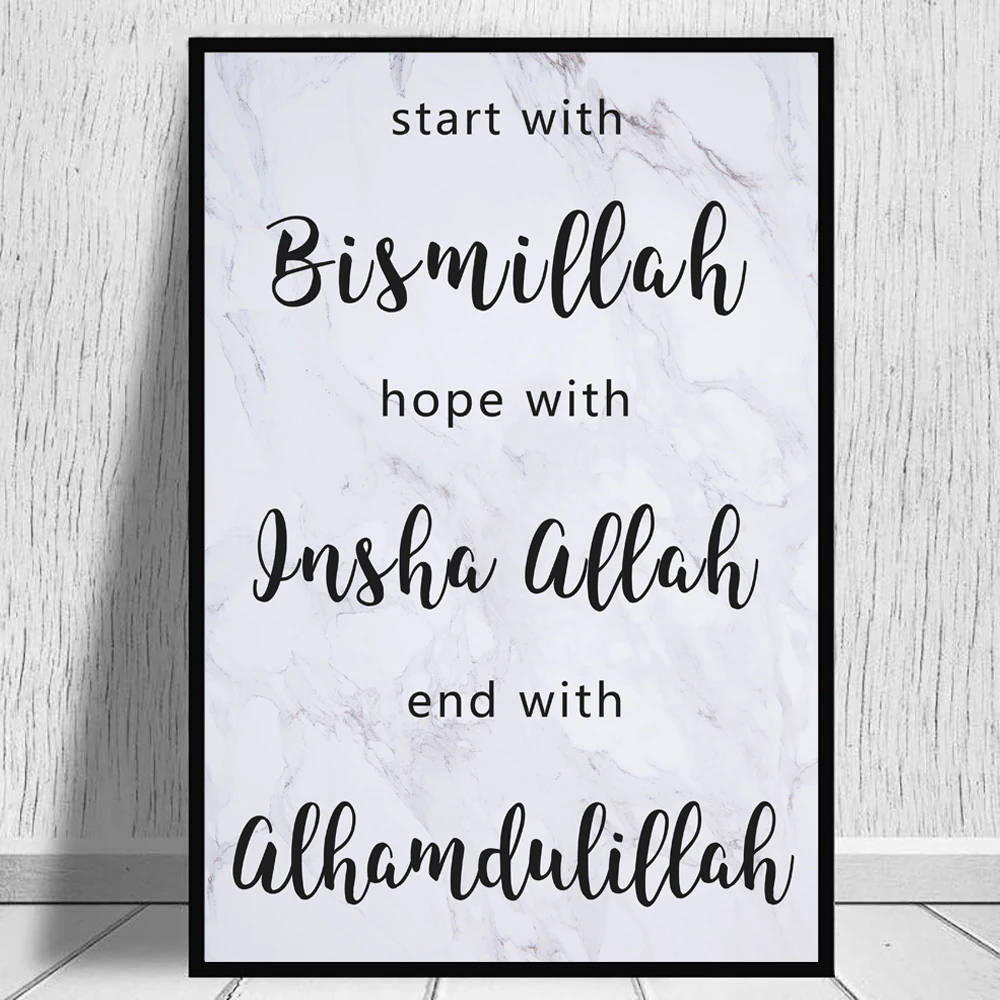 start with
Bismillah
hope with
Insha Allah
end with
Alhamdulillah